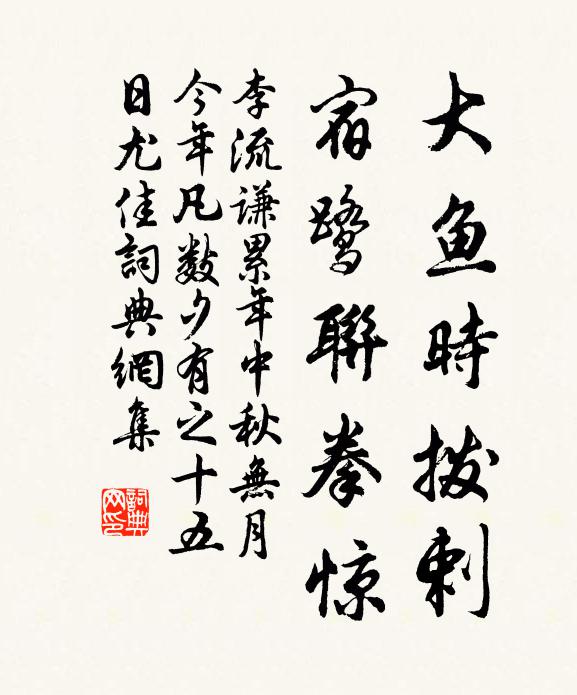 大鱼時拨剌
宿鹭聯拳惊
李流謙累年中秋無月
今年凡數夕有之十五
日尤佳詞典網集
詞典網印